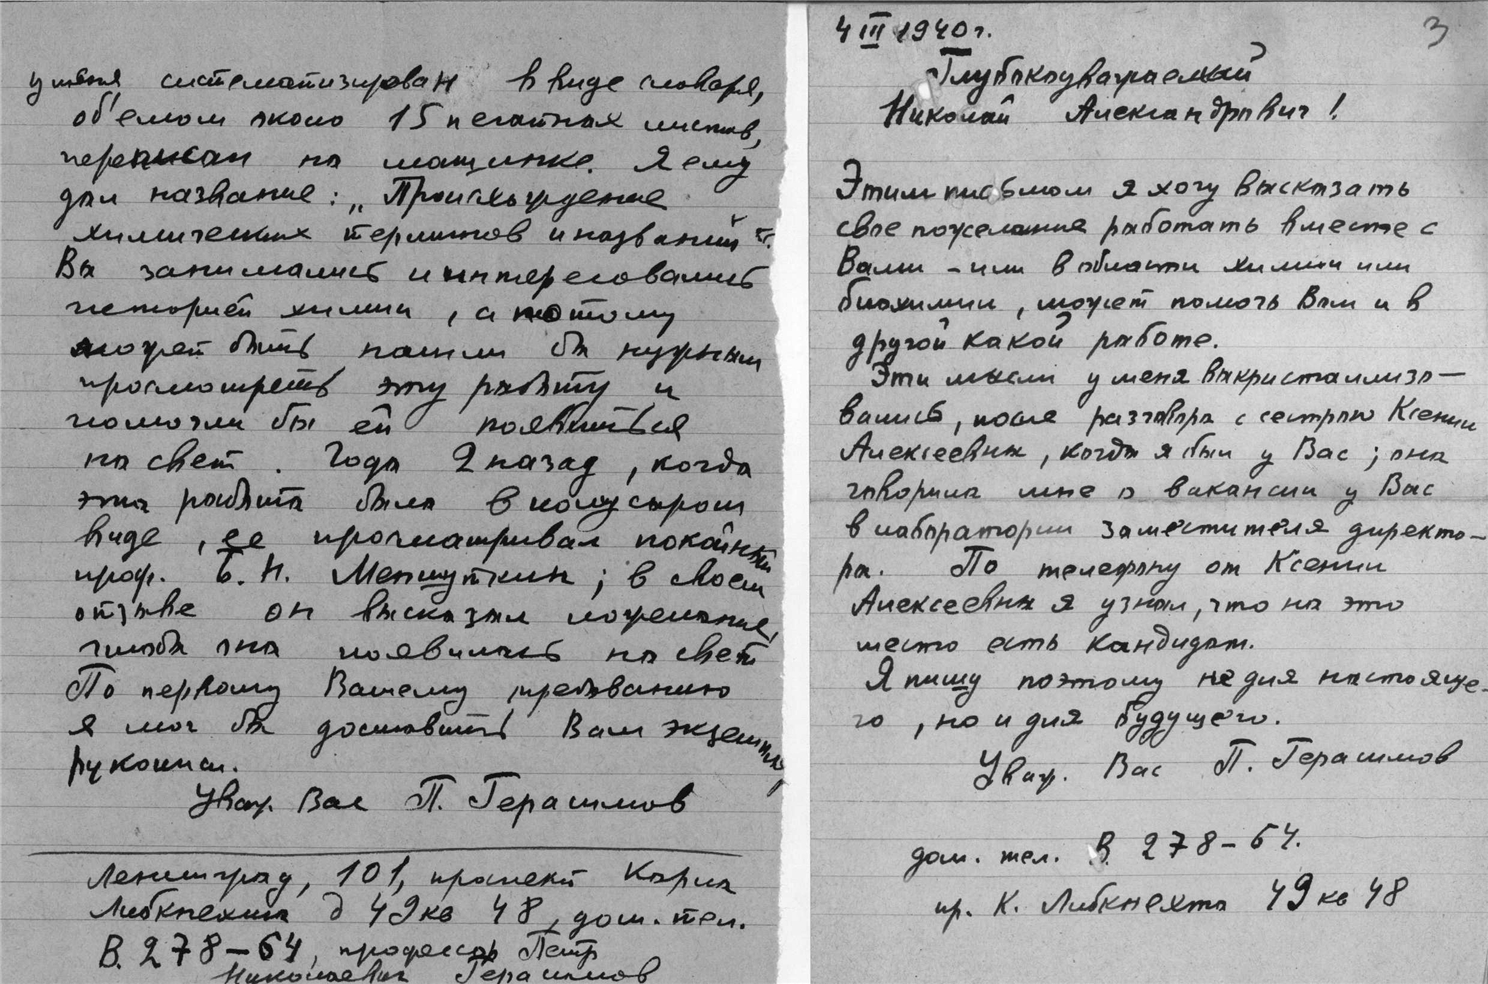 у меня систематизирован в виде словаря,
об'емом около 15 печатных листов,
переписан на машинке. Я ему
дал название: „Происхождение
химических терминов и названий“.
Вы занимались и интересовались
историей химии, а потому
может быть нашли бы нужным
просмотреть эту работу и
помогли бы ей появиться
на свет. Года 2 назад, когда
эта работа была в полусыром
виде, ее просматривал покойный
проф. Б. Н. Меншуткин; в своем
отзыве он высказал пожелание,
чтобы она появилась на свет
По первому Вашему требованию
я мог бы доставить Вам экземпляр
рукописи.
Уваж. Вас П. Герасимов
Ленинград, 101, проспект Карла
Либкнехта д 49 кв 48, дом. тел.
В. 278–64, профессор Петр
Николаевич Герасимов
4 III 1940 г.
3
Глубокоуважаемый
Николай Александрович!
Этим письмом я хочу высказать
свое пожелание работать вместе с
Вами – или в области химии или
биохимии, может помочь Вам и в
другой какой работе.
Эти мысли у меня выкристаллизо–
вались, после разговора с сестрою Ксении
Алексеевны, когда я был у Вас; она
говорила мне о вакансии у Вас
в лаборатории заместителя директо–
ра. По телефону от Ксении
Алексеевны я узнал, что на это
место есть кандидат.
Я пишу поэтому не для настояще–
го, но и для будущего.
Уваж. Вас П. Герасимов
дом. тел. В. 278–64.
пр. К. Либкнехта 49 кв 48